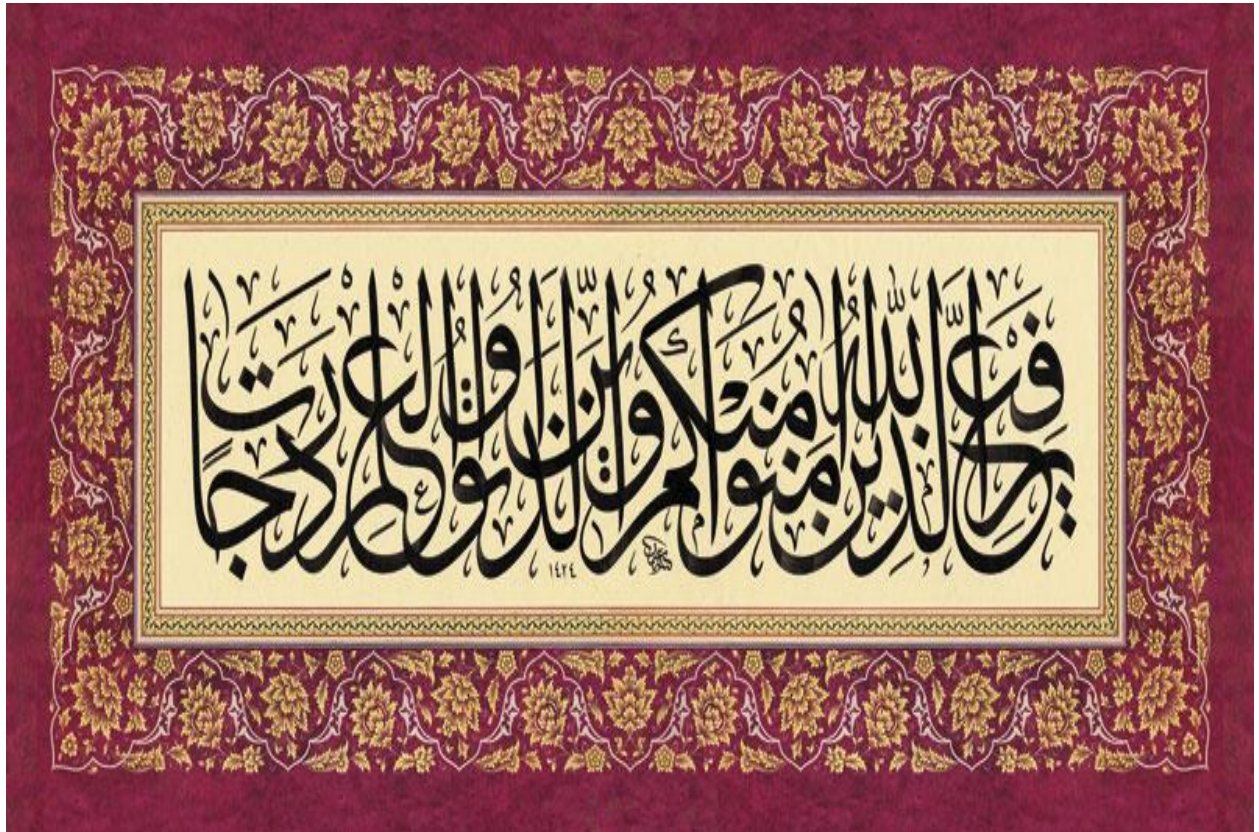 يَرْفَعِ اللَّهُ الَّذِينَ آمَنُوا مِنْكُمْ وَالَّذِينَ أُوتُوا الْعِلْمَ دَرَجَاتٍ
١٤٢٤